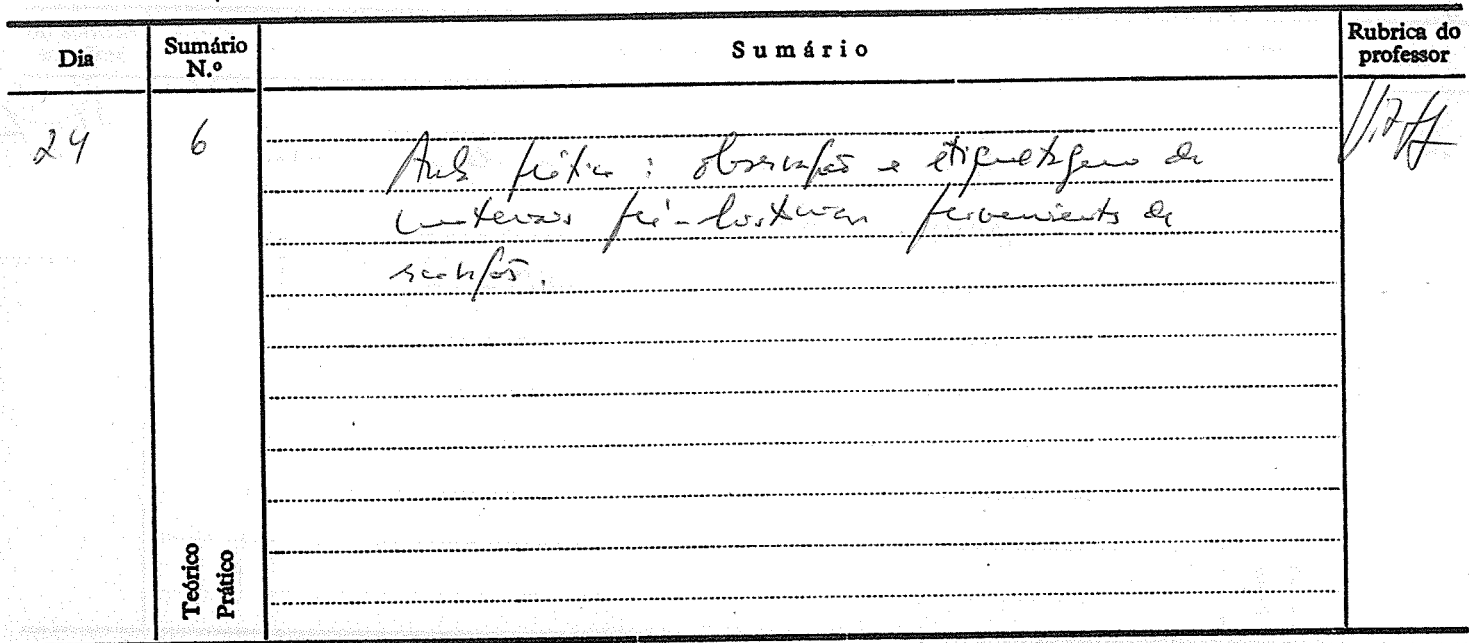 Dia
Sumário N.º
Sumário
Rubrica do professor
24
6
Aula prática : observação e etiquetagem de
materiais pré-históricos provenientes de
Teórico
Prático